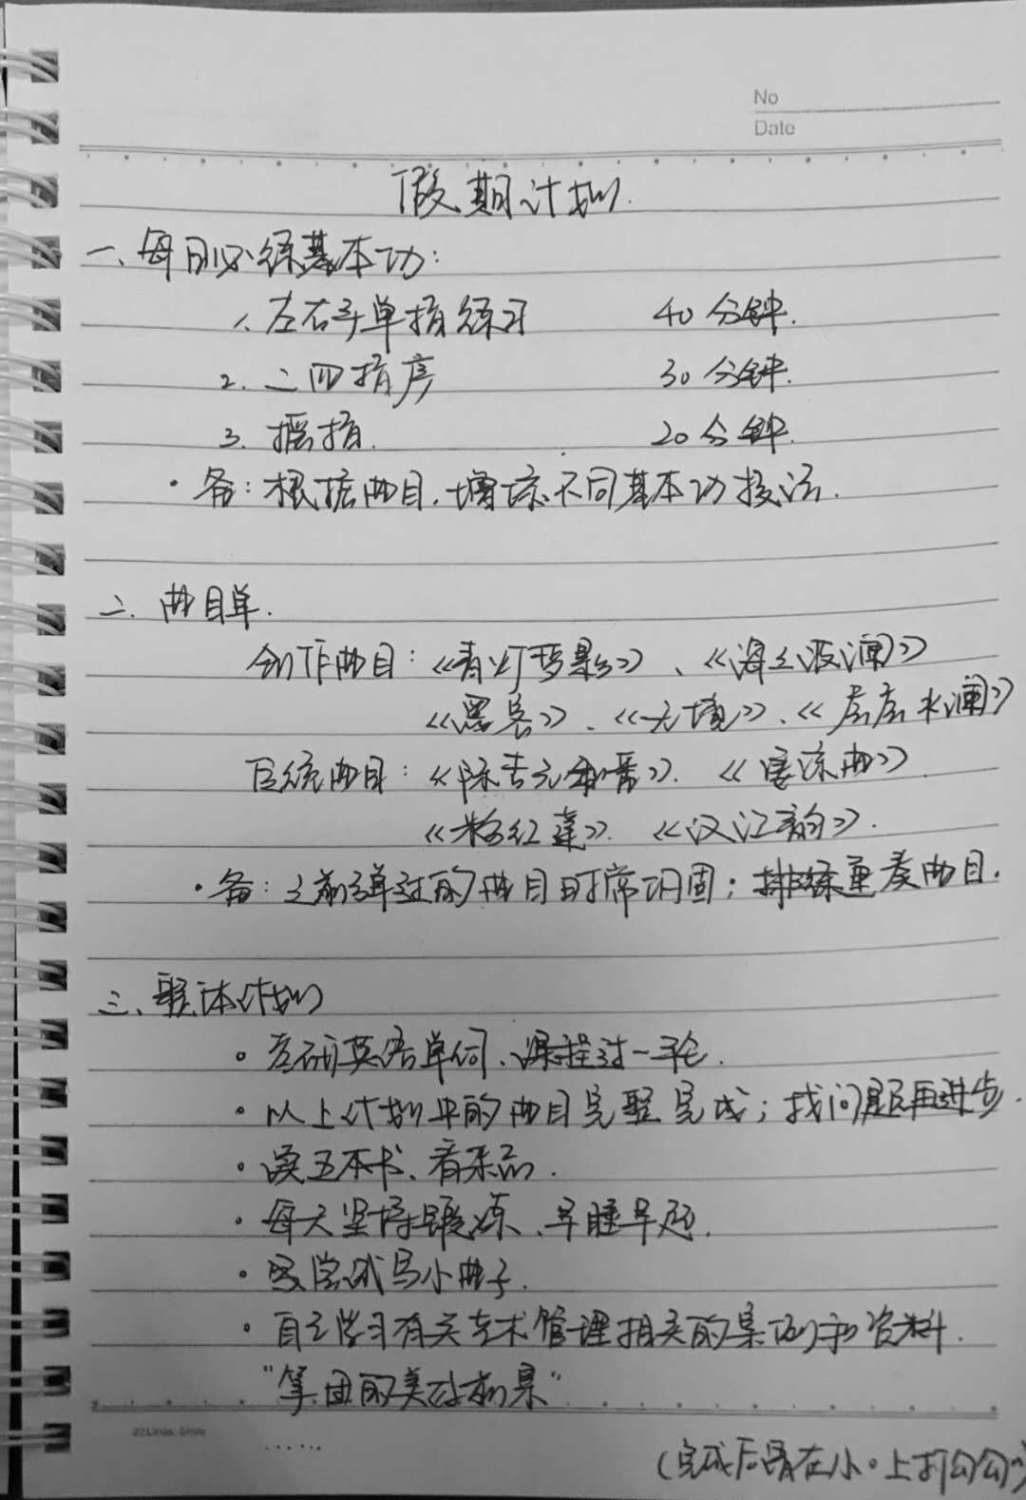 No
Date
假期计划
一、每日必练基本功：
1. 左右手单指练习 40分钟.
2. 二四指序 30分钟.
3. 摇指. 20分钟.
·备：根据曲目，增添不同基本功技法.
二. 曲目单.
创作曲目：《青灯梦影》、《海之波澜》
《墨客》、《无境》、《层层水澜》
传统曲目：《陈杏元和番》.《寒凉曲》.
《粉红莲》.《汉江韵》.
·备：之前弹过的曲目时常巩固；排练重奏曲目.
三、整体计划
·考研英语单词、课程过一轮.
·以上计划中的曲目完整完成；找问题再进步.
·读五本书、看乐品.
·每天坚持锻炼、早睡早起.
·尝试写小曲子.
·自主学习有关艺术管理相关的案例和资料.
"筝团的美好物景"
......
(完成后需在小·上打勾勾～)